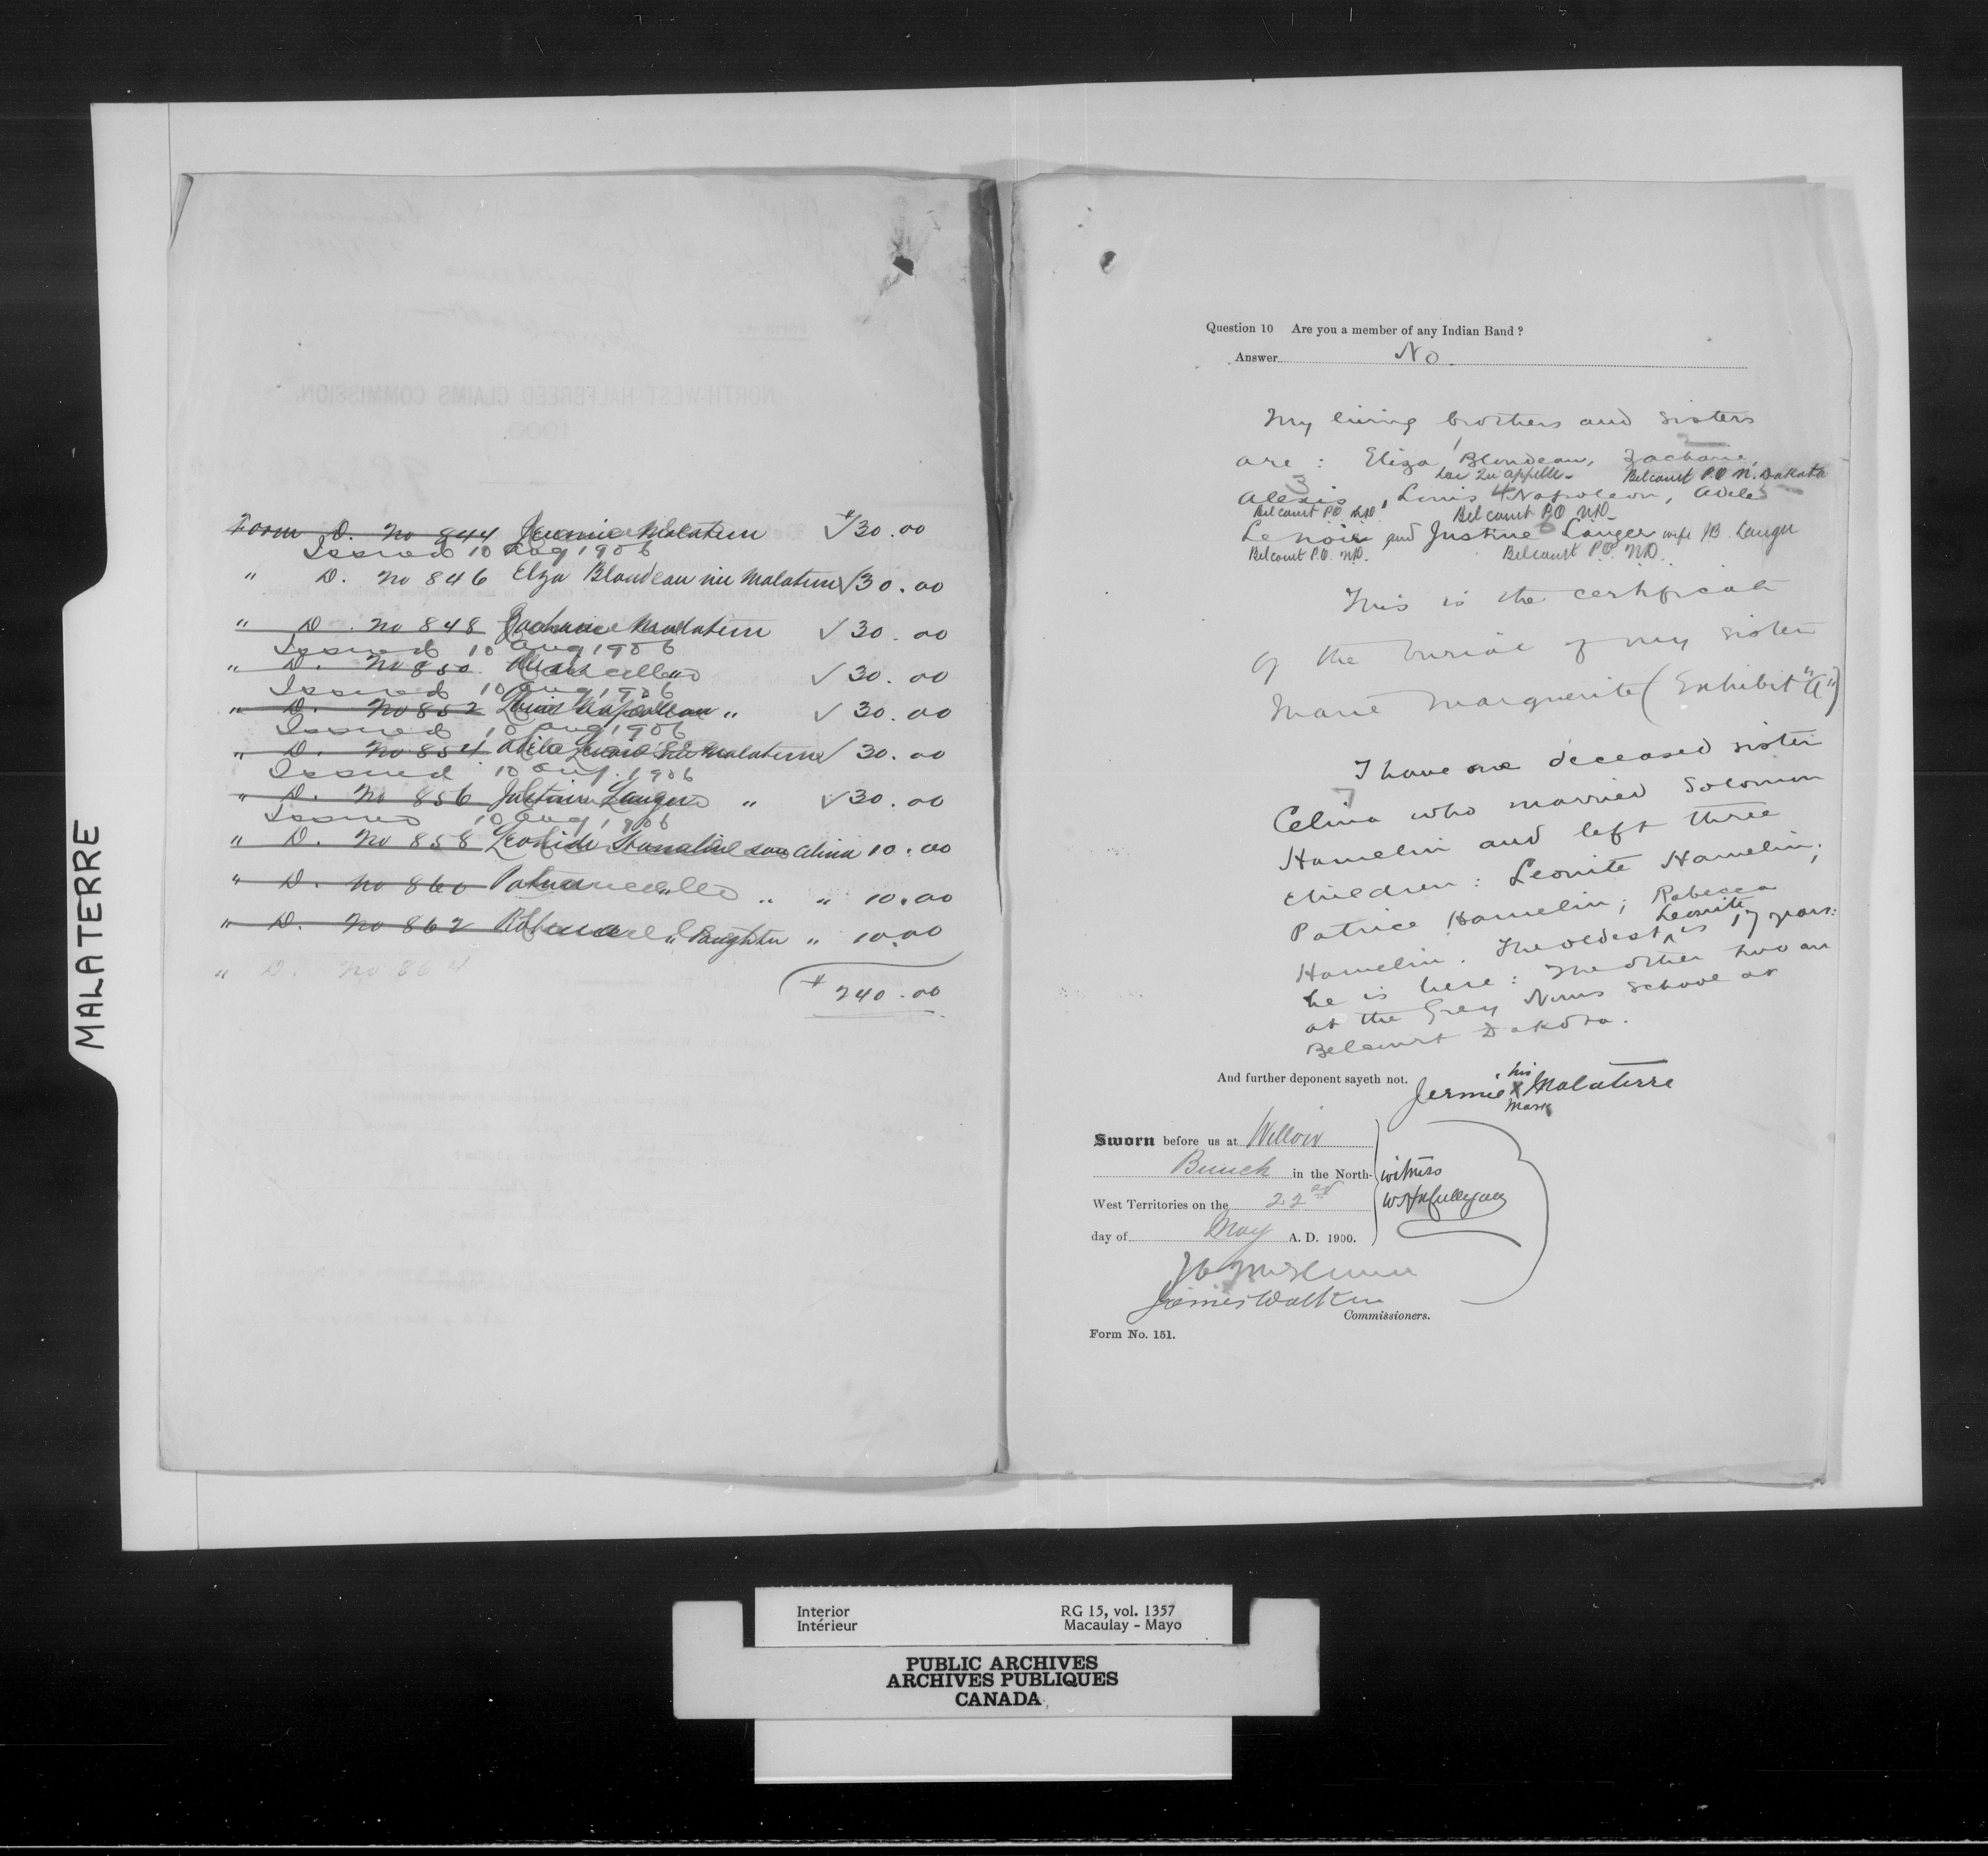 MALATERRE
Form D. No 844 Jeremie Malaterre √30.00
Issued 10 Aug 1906
" D. No 846 Elza Blondeau née Malaterre √30.00
" D. No 848 Zacharie Malaterre √ 30.00
Issued 10 Aug 1906
" D. No 850 √ 30.00
Issued 10 Aug 1906
" D. No 852 Louis Napoleon " √ 30.00
Issued 10 Aug 1906
" D. No 854 Adele née Malaterre √ 30.00
Issued 10 Aug. 1906
" D. No 856 Langer " √ 30.00
Issued 10 Aug 1906
" D. No 858 son Celina 10.00
" D. No 860 " " 10.00
" D. No 862 " Daughter " 10.00
" D. No 864
$ 240.00
NORTH-WEST HALFBREED CLAIMS COMMISSION.
1900.
Question 10 Are you a member of any Indian Band ?
Answer No.
My living brothers and sisters
are : Eliza 1 Blondeau, 2 Zacharie,
Qu'appelle - Belcourt P.O N. Dakota
3 Alexis, Louis 4 Napoleon, Adele 5
Belcourt PO N.D. Belcourt P.O N.D.
Lenoir and Justine 6 Langer wife JB. Langer
Belcourt P.O. N.D. Belcourt P.O. N.D.
This is the certificate
of the burial of my sister
Marie Marguerite (Exhibit "A")
I have one deceased sister
7 Celina who married Solomon
Hamelin and left three
children : Leonite Hamelin;
Patrice Hamelin; Rebecca
Hamelin. The oldest Leonite is 17 years:
he is here : The other two are
at the Grey Nuns School at
Belcourt Dakota.
And further deponent sayeth not. Jermie his X mark Malaterre
Sworn before us at Willow
Bunch in the North- witness
West Territories on the 22nd
day of May A. D. 1900.
James Walker
Commissioners.
Form No. 151.
Interior RG 15, vol. 1357
Intérieur Macaulay - Mayo
PUBLIC ARCHIVES
ARCHIVES PUBLIQUES
CANADA